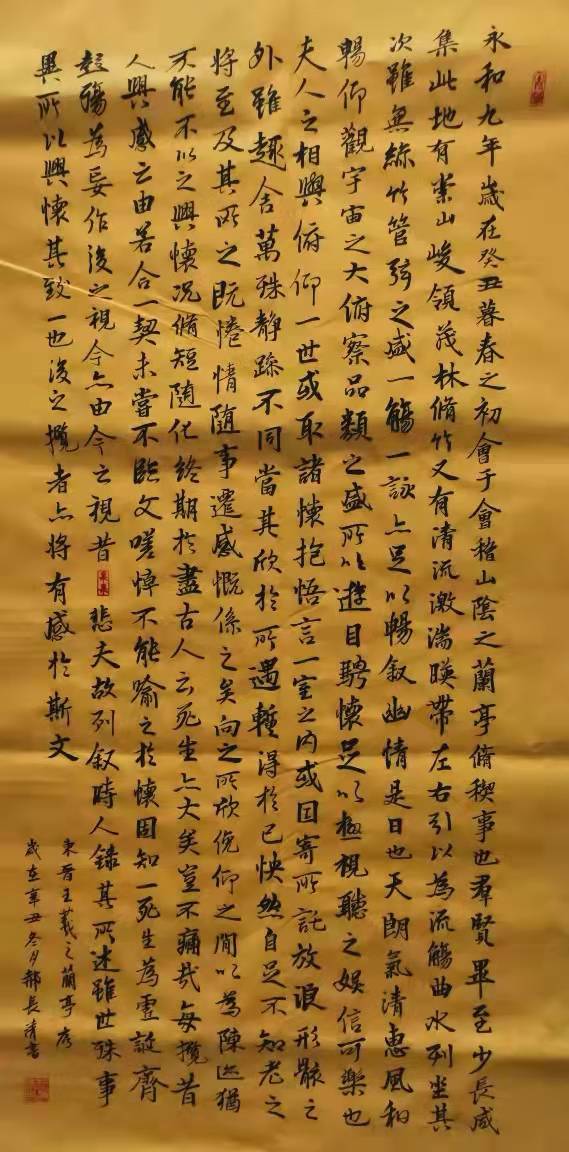 永和九年歲在癸丑暮春之初會于會稽山陰之蘭亭脩稧事也羣賢畢至少長咸
集此地有崇山峻領茂林脩竹又有清流激湍暎帶左右引以為流觴曲水列坐其
次雖無絲竹管弦之盛一觴一詠亦足以暢叙幽情是日也天朗氣清惠風和
暢仰觀宇宙之大俯察品類之盛所以遊目騁懷足以極視聽之娛信可樂也
夫人之相與俯仰一世或取諸懷抱悟言一室之內或因寄所託放浪形骸之
外雖趣舍萬殊靜躁不同當其欣於所遇暫得於己怏然自足不知老之
將至及其所之既惓情隨事遷感慨係之矣向之所欣俛仰之間以為陳迹猶
不能不以之興懷況脩短隨化終期於盡古人云死生亦大矣豈不痛哉每攬昔
人興感之由若合一契未嘗不臨文嗟悼不能喻之於懷固知一死生為虛誕齊
彭殤為妄作後之視今亦由今之視昔悲夫故列叙時人錄其所述雖世殊事
異所以興懷其致一也後之攬者亦將有感於斯文
東晉王羲之蘭亭序
歲在辛丑冬月郝長清書